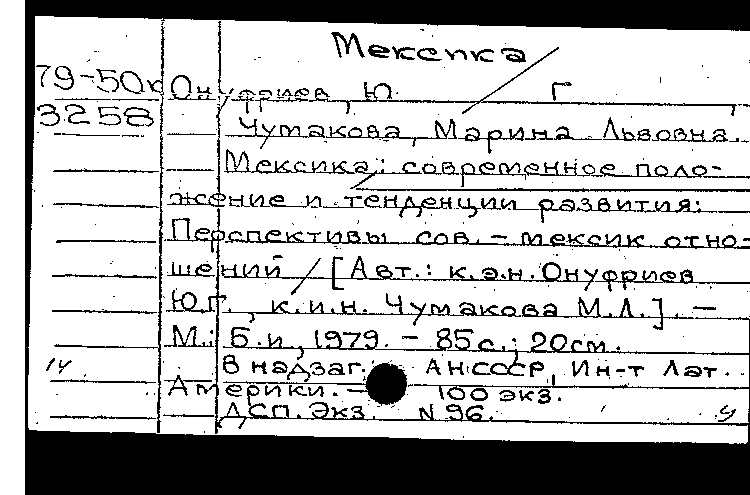 Мексика
79-50к Онуфриев, Ю. Г.,
3258 Чумакова, Марина Львовна.
Мексика: современное поло-
жение и тенденции развития:
Перспективы сов.-мексик отно-
шений / [Авт.: к.э.н. Онуфриев
Ю.Г., к.и.н. Чумакова М.Л.]. —
М.: Б.и, 1979. - 85с.; 20см.
14 В надзаг.: АН СССР, Ин-т Лат.
Америки. — 100 экз.
ДСП. Экз. N 96.